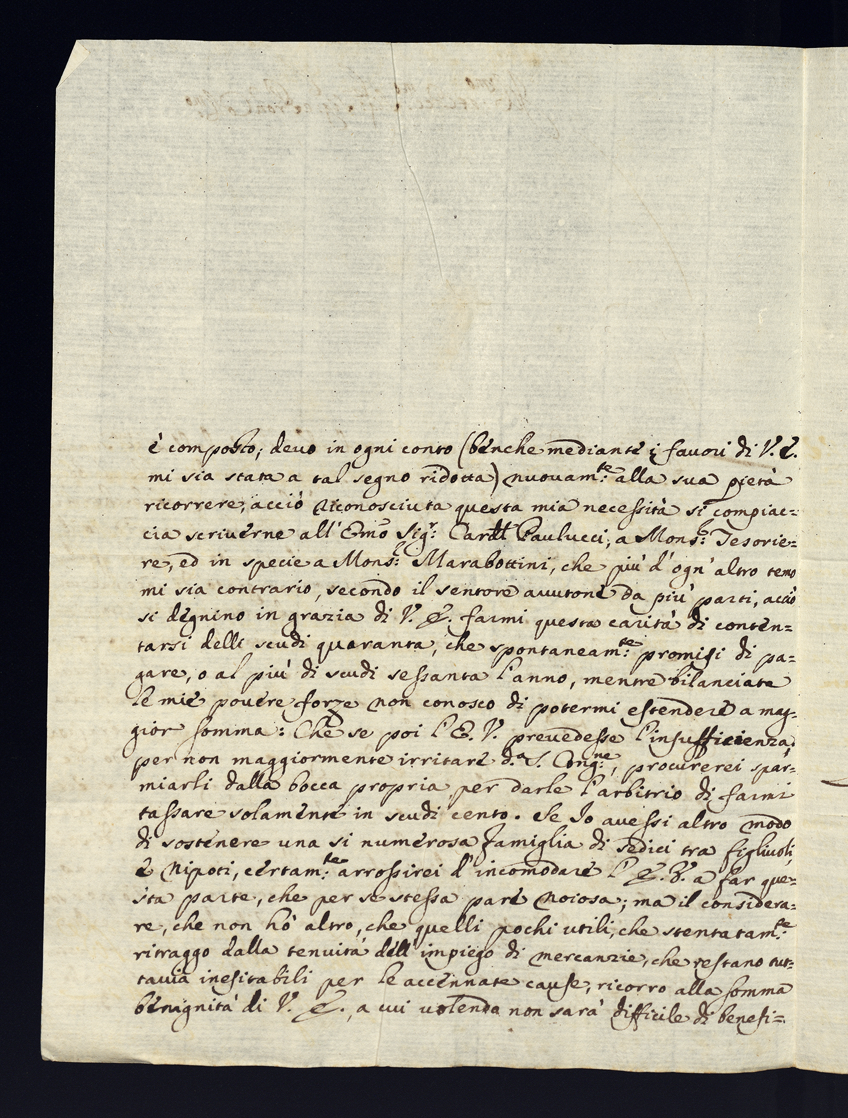 è composto; devo in ogni conto (benche mediante i favori di V. E.
mi sia stata a tal segno ridotta) nuovam.te alla sua pietà
ricorrere, acciò riconosciuta questa mia necessità si compiac=
cia scriverne all' Emo Sig.r Card.l Paulucci, a Mons.r Tesorie=
re, ed in specie a Mons.r Marabottini, che più d'ogn' altro temo
mi sia contrario, secondo il sentore avutone da più parti, acciò
si degnino in grazia di V. E. farmi questa carità di conten=
tarsi delli scudi quaranta, che spontaneam.te promisi di pa=
gare, o al più di scudi sessanta l'anno, mentre bilanciate
le mie povere forze non conosco di potermi estendere a mag=
gior somma: Che se poi l'E. V. prevedesse l'insufficienza
per non maggiormente irritare d.a S. Cong.ne, procurerei spar=
miarli dalla bocca propria per darle l'arbitrio di farmi
tassare solamente in scudi cento. Se Io avessi altro modo
di sostenere una si numerosa famiglia di sedici tra figlivoli,
e Nipoti, certam.te arrossirei d'incomodare l'E. V. a far que=
sta parte, che per se stessa pare noiosa; ma il considera=
re, che non hò altro, che quelli pochi utili, che stentatam.te
ritraggo dalla tenuità dell' impiego di mercanzie, che restano tut=
tavia inesitabili per le accennate cause, ricorro alla somma
benignità di V. E., a cui volendo non sarà difficile di benefi=